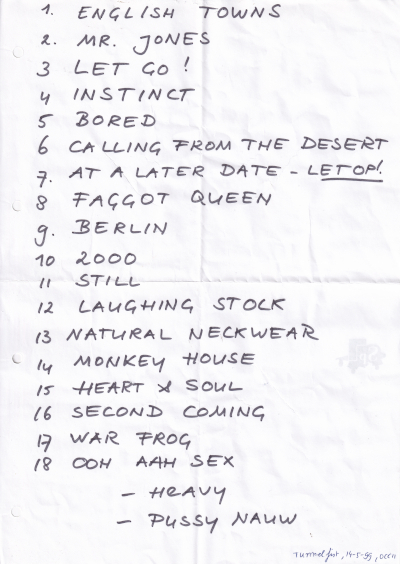 1. ENGLISH TOWNS
2. MR. JONES
3 LET GO!
4 INSTINCT
5 BORED
6 CALLING FROM THE DESERT
7. AT A LATER DATE - LET OP!
8 FAGGOT QUEEN
9. BERLIN
10 2000
11 STILL
12 LAUGHING STOCK
13 NATURAL NECKWEAR
14 MONKEY HOUSE
15 HEART & SOUL
16 SECOND COMING
17 WAR FROG
18 OOH AAH SEX
- HEAVY
- PUSSY NAUW
Tunnelfest, 14-5-99,